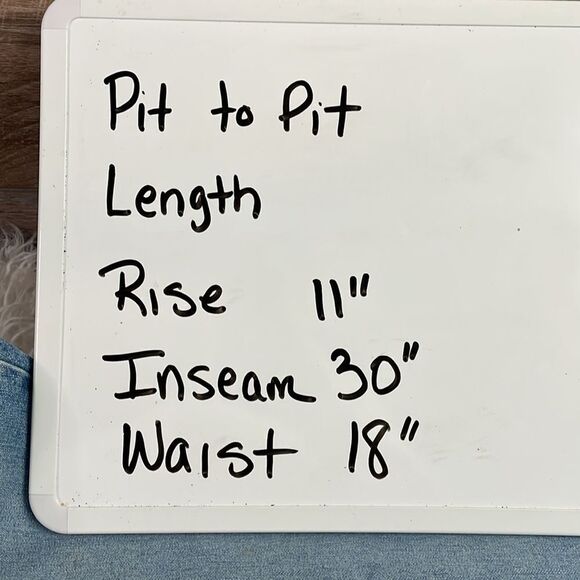 Pit to Pit
Length
Rise 11"
Inseam 30"
Waist 18"